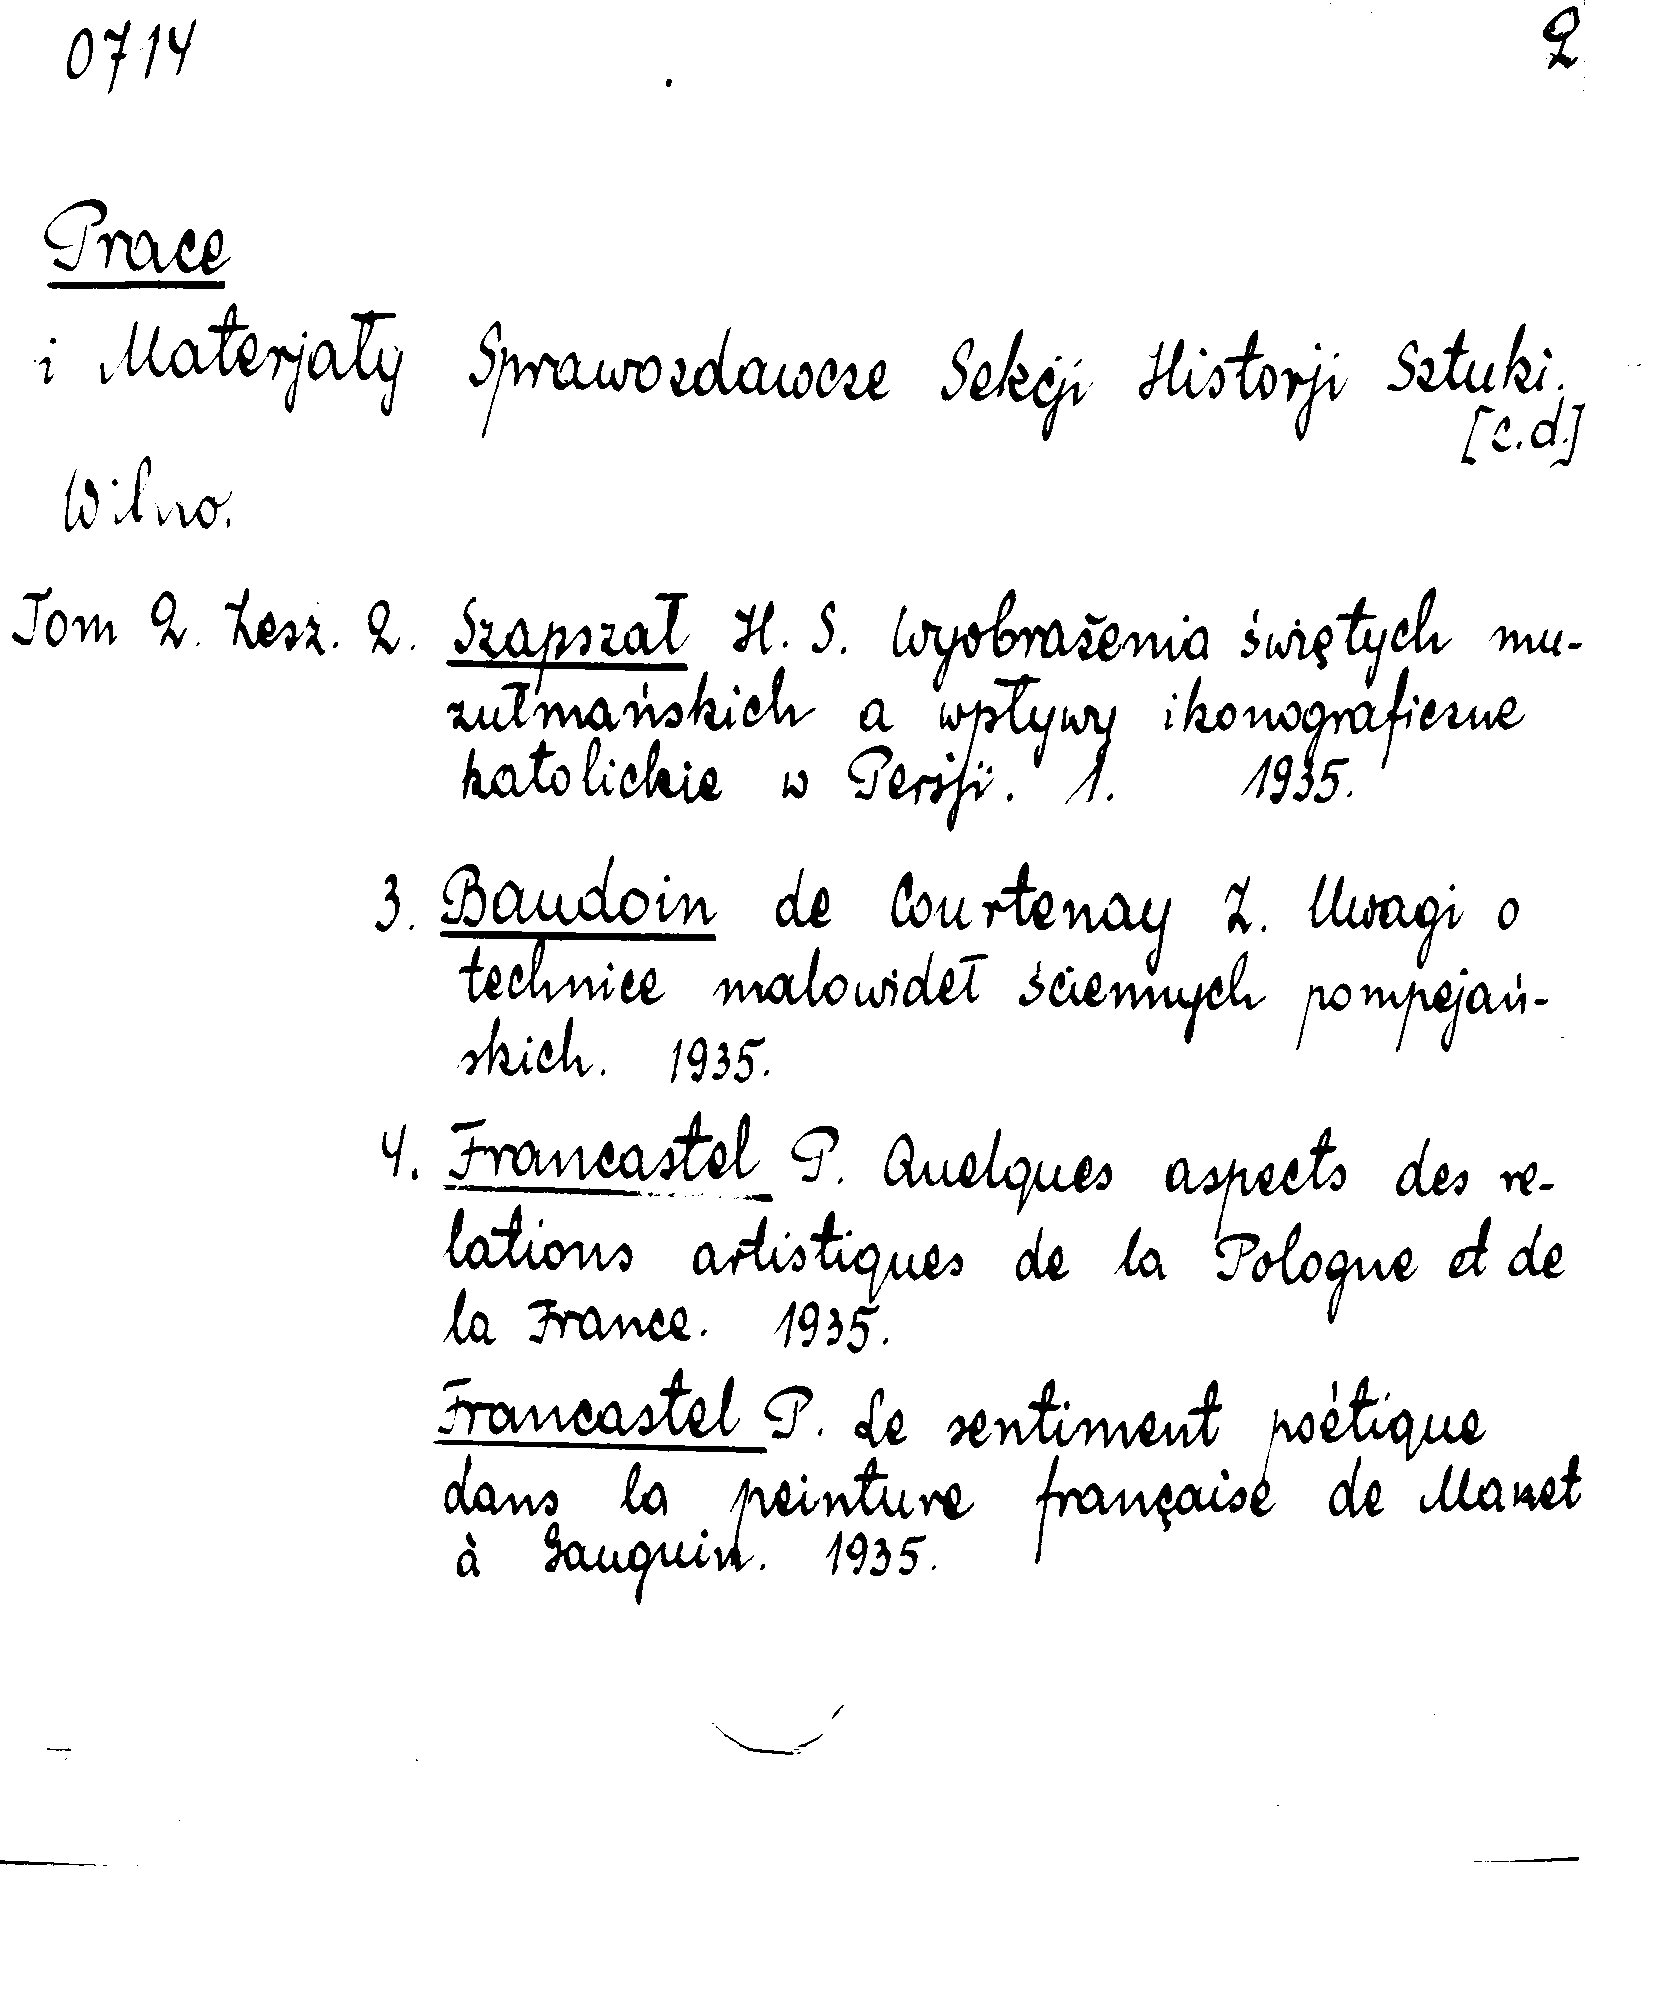 0714 2
Prace
i Materjały Sprawozdawcze Sekcji Historji Sztuki.
[c.d.]
Wilno.
Tom 2. Zesz. 2. Szapszał H. S. Wyobrażenia świętych mu-
zułmańskich a wpływy ikonograficzne
katolickie w Persji. 1. 1935.
3. Baudoin de Courtenay Z. Uwagi o
technice malowideł ściennych pompejań-
skich. 1935.
4. Francastel P. Quelques aspects des re-
lations artistiques de la Pologne et de
la France. 1935.
Francastel P. Le sentiment poétique
dans la peinture française de Manet
à Gauguin. 1935.